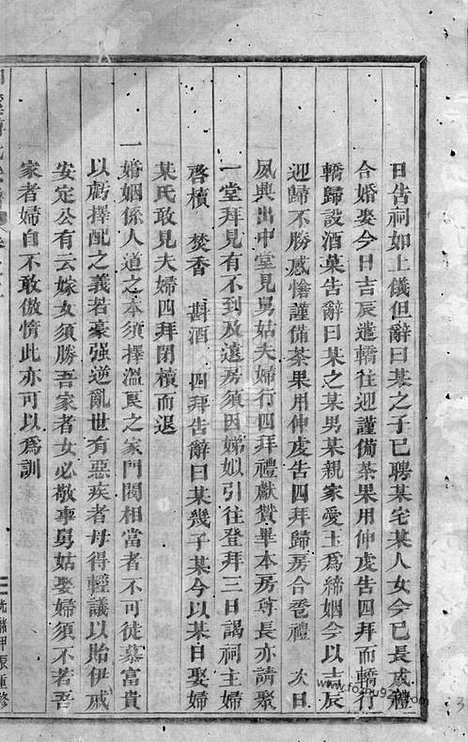 日告祠如上儀但辭曰某之子已聘某宅某人女今已長成禮
合婚娶今日吉辰遣轎往迎謹備茶果用伸虔告四拜而轎行
轎歸設酒菓告辭曰某之某男某親家愛玉為締姻今以吉辰
迎歸不勝感愴謹備茶果用伸虔告四拜歸房合卺禮　次日
夙興出中堂見舅姑夫婦行四拜禮獻贄畢本房尊長亦請聚
一堂拜見有不到及遠房須因娣姒引往登拜三日謁祠主婦
啓櫝　焚香　斟酒　四拜告辭曰某幾子某今以某日娶婦
某氏敢見夫婦四拜閉櫝而退
一婚姻係人道之本須擇溫良之家門閥相當者不可徒慕富貴
以虧擇配之義若豪强逆亂世有惡疾者毋得輕議以貽伊戚
安定公有云嫁女須勝吾家者女必敬事舅姑娶婦須不若吾
家者婦自不敢傲惰此亦可以為訓
光緒甲辰重修
www.fozhu920.com